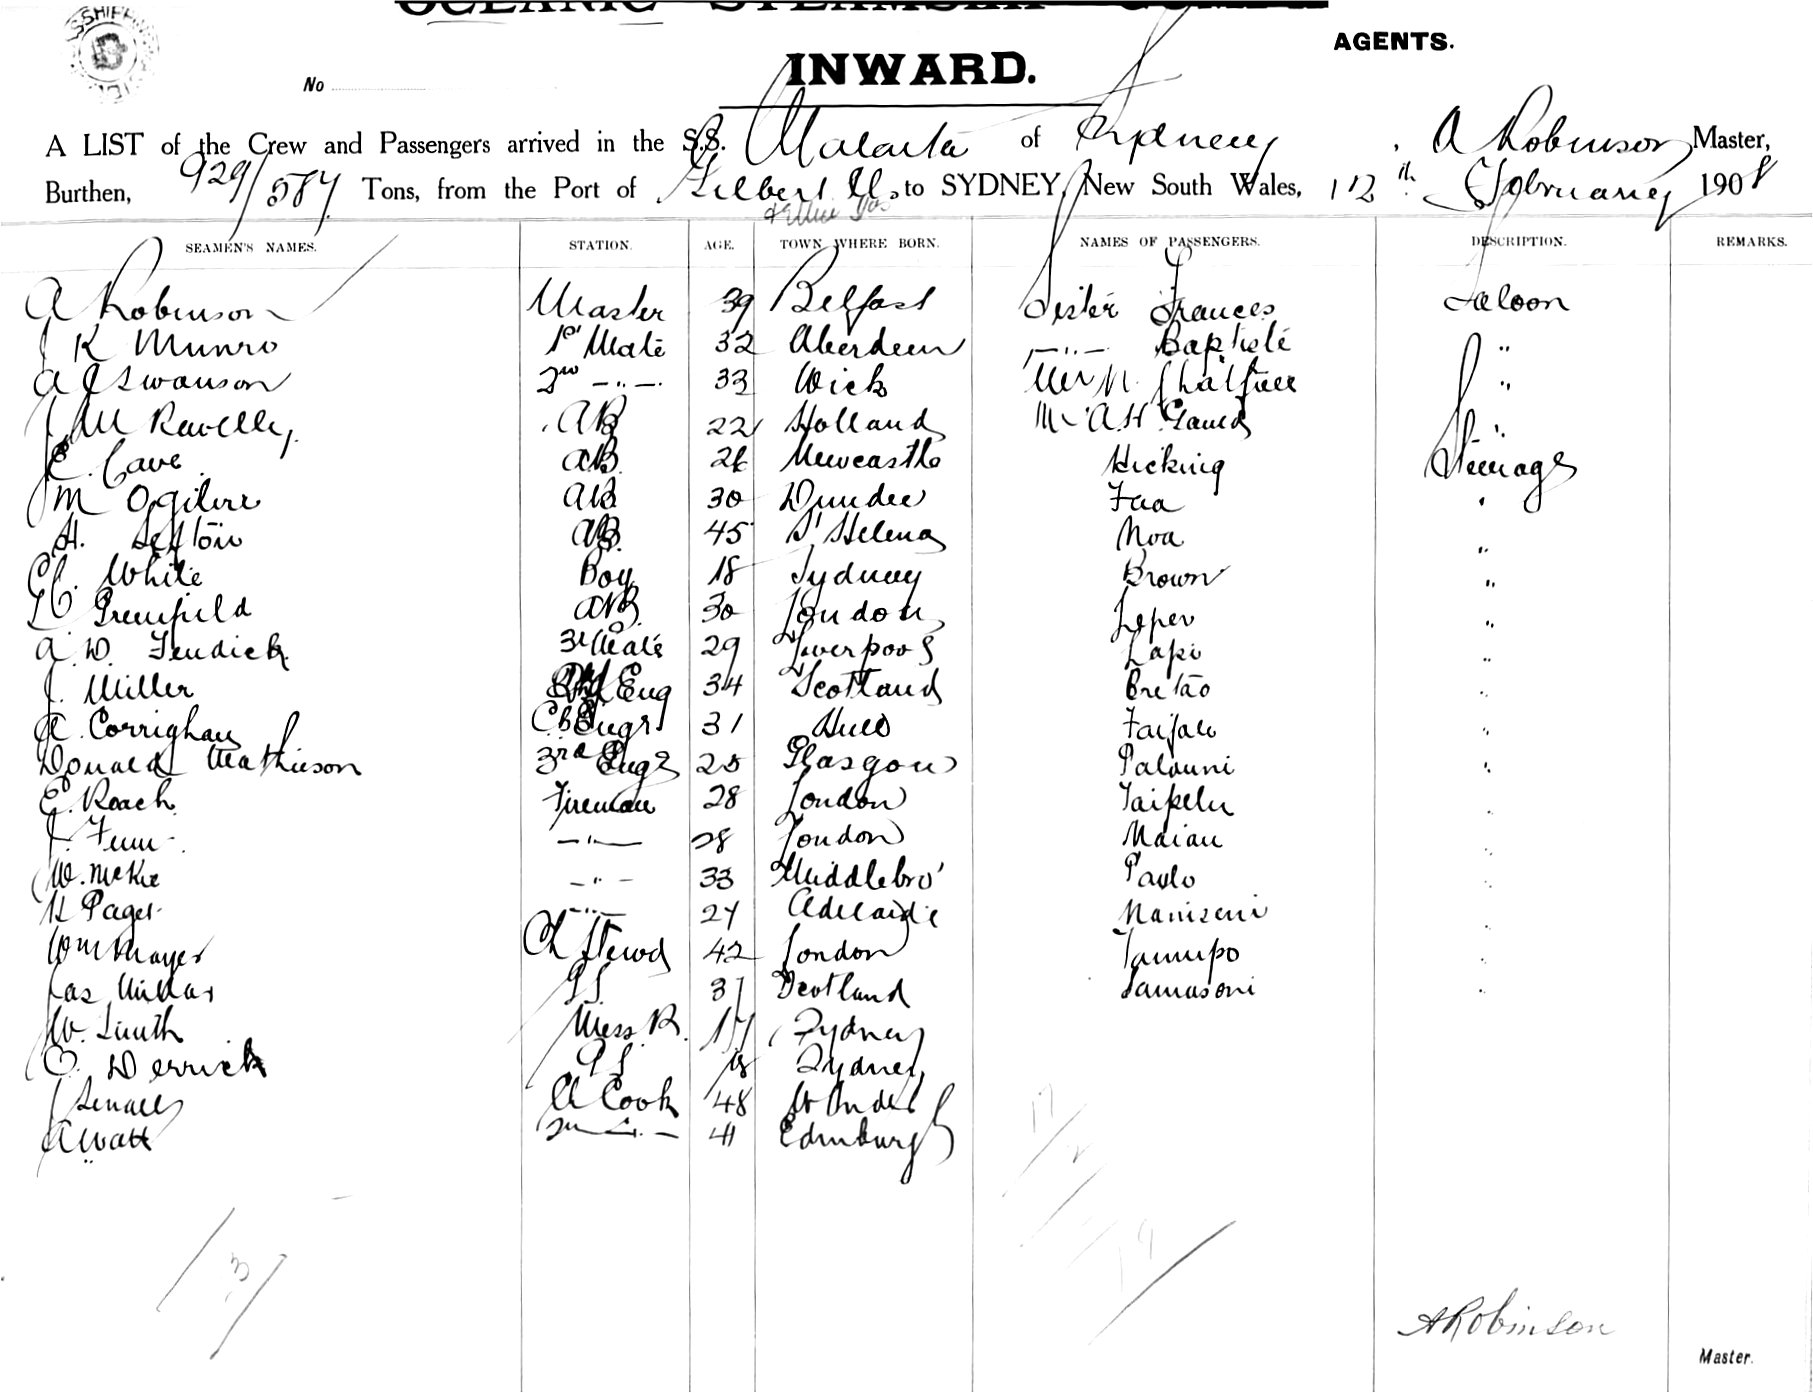 OCEANIC STEAMSHIP
AGENTS.
No
INWARD.
A LIST of the Crew and Passengers arrived in the S.S. Malaita of Sydney, A Robinson Master,
Burthen, 929/587 Tons, from the Port of Gilbert Is to SYDNEY, New South Wales, 12th February 1908
SEAMEN'S NAMES. STATION. AGE. TOWN WHERE BORN. NAMES OF PASSENGERS. DESCRIPTION. REMARKS.
A Robinson Master 39 Belfast Sister Frances Saloon
J K Munro 1st Mate 32 Aberdeen —"— Baptiste "
A J Swanson 2nd —"— 33 Wick Mr N. Chatfield "
J M AB 22 Holland Mr A.H. Gauld "
E. Cave AB. 26 Newcastle Hicking Steerage
M Ogilvie AB 30 Dundee Faa "
H. Sefton AB. 45 St Helena Noa "
C. White Boy 18 Sydney Brown "
Greenfield AB 30 London Leper "
A. W. Fendick 3rd Mate 29 Liverpool Lapi "
J. Miller 2nd Eng 34 Scotland Cretao "
A. Corrighan Ch Engr 31 Hull "
Donald Mathieson 3rd Eng 25 Glasgow Palauni "
E. Roach Fireman 28 London Taipelu "
J. Fenn —"— 28 London Maiau "
W. McKie —"— 33 Middlebro' Paulo "
H Paget —"— 24 Adelaide "
Wm Mayer Ch Stewd 42 London "
Jas Millar 2S. 37 Scotland Samasoni "
W. Smith Mess. R. 17 Sydney
C. Derrick 18 Sydney
J Ch Cook 48 W Indes
A Watt 2nd —"— 41 Edinburgh
17
2
19
A Robinson
Master.